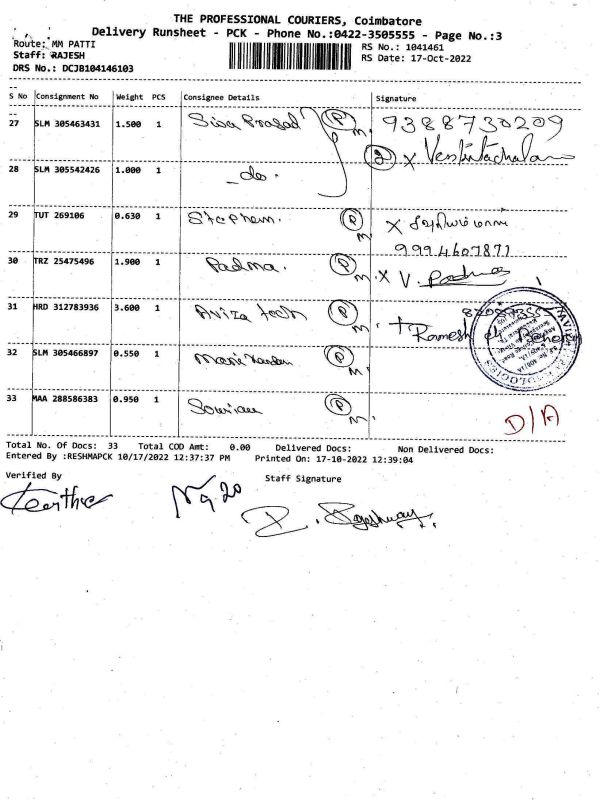 THE PROFESSIONAL COURIERS, Coimbatore
Delivery Runsheet - PCK - Phone No.:0422-3505555 - Page No.:3
Route: MM PATTI RS No.: 1041461
Staff: RAJESH RS Date: 17-Oct-2022
DRS No.: DCJB104146103
S No Consignment No Weight PCS Consignee Details Signature
27 SLM 305463431 1.500 1 Siva Prasad P M. 9388730209
2 x Venkatachalam
28 SLM 305542426 1.000 1 -do-
29 TUT 269106 0.630 1 Stephen. P M x
9994607871
30 TRZ 25475496 1.900 1 Padma. P M. x V. Padma
31 HRD 312783936 3.600 1 Aviza tech P M.
Ramesh
32 SLM 305466897 0.550 1 P M.
33 MAA 288586383 0.950 1 P M. D/A
Total No. Of Docs: 33 Total COD Amt: 0.00 Delivered Docs: Non Delivered Docs:
Entered By :RESHMAPCK 10/17/2022 12:37:37 PM Printed On: 17-10-2022 12:39:04
Verified By Staff Signature